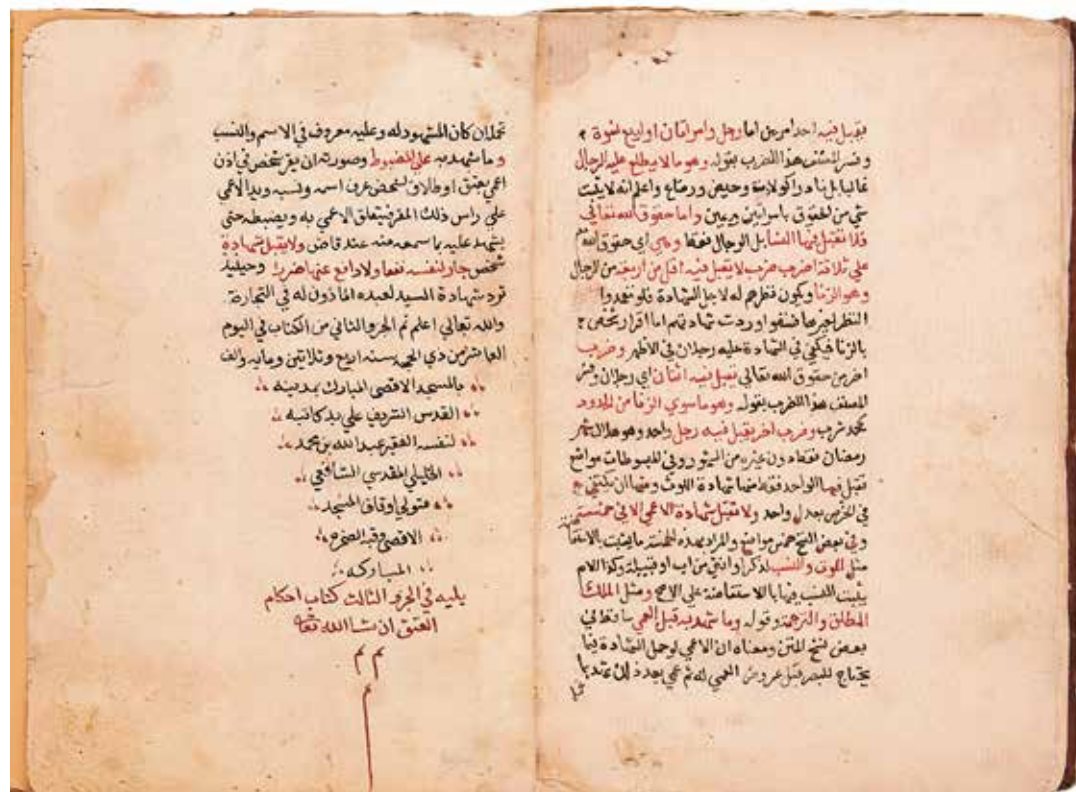 فيقبل فيه احد امرين اما رجل وامراتان او اربع نسوة
وفسر المصنف هذا الضرب بقوله وهو ما لا يطلع عليه الرجال
غالبا بل نادرا كولادة وحيض ورضاع واعلم انه لا يثبت
شي من الحقوق بامراتين ويمين واما حقوق الله تعالي
فلا تقبل فيها النسا بل الرجال فقط وهي اي حقوق الله
علي ثلاثة اضرب ضرب لا يقبل فيه اقل من اربعة من الرجال
وهو الزنا ويكون نظرهم له لاجل الشهادة فلو تعمدوا
النظر لغيرها فسقوا وردت شهادتهم اما اقرار شخص
بالزنا فيكفي في الشهادة عليه رجلان في الاظهر وضرب
اخر من حقوق الله تعالي يقبل فيه اثنان اي رجلان وفسر
المصنف هذا الضرب بقوله وهو ما سوي الزنا من الحدود
كحد شرب وضرب اخر يقبل فيه رجل واحد وهو هلال شهر
رمضان فقط دون غيره من الشهور وفي المبسوطات مواضع
تقبل فيها الواحد فقط منها شهادة اللوث ومنها ان يكتفي
في الخرص بعدل واحد ولا تقبل شهادة الاعمي الا في خمسة
وفي بعض النسخ خمس مواضع والمراد بهذه الخمسة ما يثبت بالاستفاضة
مثل الموت والنسب لذكر او انثي من اب او قبيلة وكذا الام
يثبت النسب فيها بالاستفاضة علي الاصح ومثل الملك
المطلق والترجمة وقوله وما شهد به قبل العمي ساقط في
بعض نسخ المتن ومعناه ان الاعمي لو حمل الشهادة فيما
يحتاج للبصر قبل عروض العمي له ثم عمي بعد ذلك شهد بما
تحملان كان المشهود له وعليه معروفي الاسم والنسب
وما شهد به علي المضبوط وصورته ان يقر شخص في اذن
اعمي بعتق او طلاق لشخص عرف اسمه ونسبه ويد الاعمي
علي راس ذلك المقر فيتعلق الاعمي به ويضبطه حتي
يشهد عليه بما سمعه منه عند قاض ولا يقبل شهادة
شخص جار لنفسه نفعا ولا دافع عنها ضررا وحينئذ
ترد شهادة السيد لعبده الماذون له في التجارة
والله تعالي اعلم تم الجزو الثاني من الكتاب في اليوم
العاشر من ذي الحجة سنة اربع وثلاثين وماية والف
بالمسجد الاقصي المبارك بمدينة
القدس الشريف علي يد كاتبه
لنفسه الفقير عبد الله بن محمد
الخليلي المقدسي الشافعي
متولي اوقاف المسجد
الاقصي وقبة الصخرة
المباركة
يليه في الجزو الثالث كتاب احكام
العتق ان شا الله تعالي
م م
م